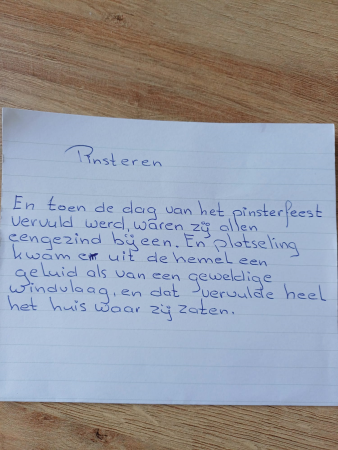 Pinsteren
En toen de dag van het pinsterfeest
vervuld werd, waren zij allen
eengezind bijeen. En plotseling
kwam er uit de hemel een
geluid als van een geweldige
windvlaag, en dat vervulde heel
het huis waar zij zaten.